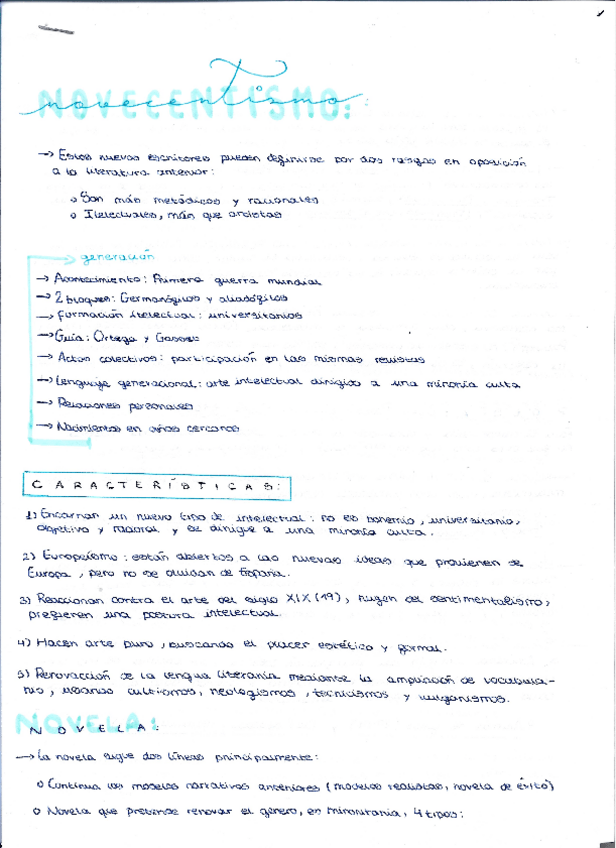 NOVECENTISMO:
→ Estos nuevos escritores pueden definirse por dos rasgos en oposición
a la literatura anterior:
o Son más metódicos y racionales
o Itelectuales, más que artistas
→ generación
→ Acontecimiento: Primera guerra mundial
→ 2 bloques: Germanófilos y aliadófilos
→ Formación itelectual: universitarios
→ Guía: Ortega y Gasset
→ Actos colectivos: participación en las mismas revistas
→ Lenguaje generacional: arte intelectual dirigido a una minoría culta
→ Relaciones personales
→ Nacimientos en años cercanos
CARACTERÍSTICAS:
1) Encarnan un nuevo tipo de intelectual: no es bohemio, universitario,
objetivo y racional y se dirige a una minoría culta.
2) Europeísmo: están abiertos a las nuevas ideas que provienen de
Europa, pero no se olvidan de España.
3) Reaccionan contra el arte del siglo XIX (19), huyen del sentimentalismo,
prefieren una postura intelectual.
4) Hacen arte puro, buscando el placer estético y formal.
5) Renovacción de la lengua literaria mediante la ampliación de vocabula-
rio, usando cultismos, neologismos, tecnicismos y vulgarismos.
NOVELA:
→ La novela sigue dos líneas principalmente:
o Continua los modelos narrativos anteriores (modelos realistas, novela de éxito)
o Novela que pretende renovar el género, es minoritaria, 4 tipos: